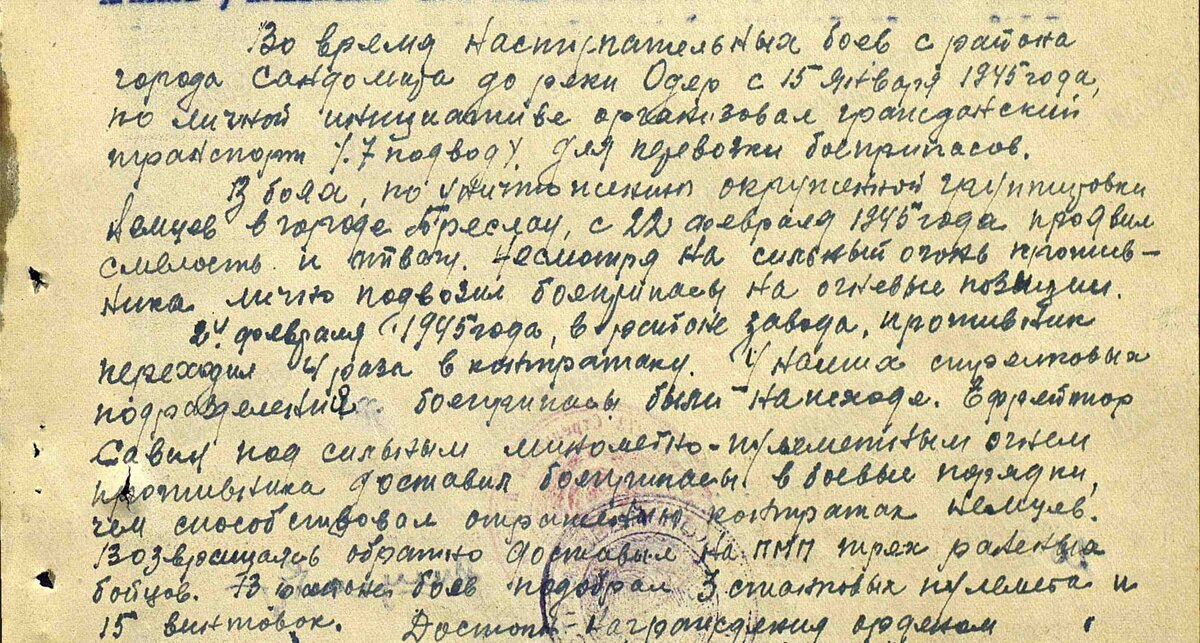 Во время наступательных боев с района
города Сандомира до реки Одер с 15 января 1945 года,
по личной инициативе организовал гражданский
транспорт /.7 подвод/ для перевозки боеприпасов.
В боях, по уничтожению окруженной группировки
немцев в городе Бреслау, с 22 февраля 1945 года проявил
смелость и отвагу. Несмотря на сильный огонь против-
ника лично подвозил боеприпасы на огневые позиции.
24 февраля 1945 года, в районе завода, противник
переходил 4 раза в контратаку. У наших стрелковых
подразделений боеприпасы были на исходе. Ефрейтор
Савин под сильным минометно-пулеметным огнем
противника доставил боеприпасы в боевые порядки,
чем способствовал отражению контратак немцев.
Возвращаясь обратно доставил на ПМП трех раненых
бойцов. В районе боев подобрал 3 станковых пулемета и
15 винтовок. Достоин награждения орденом